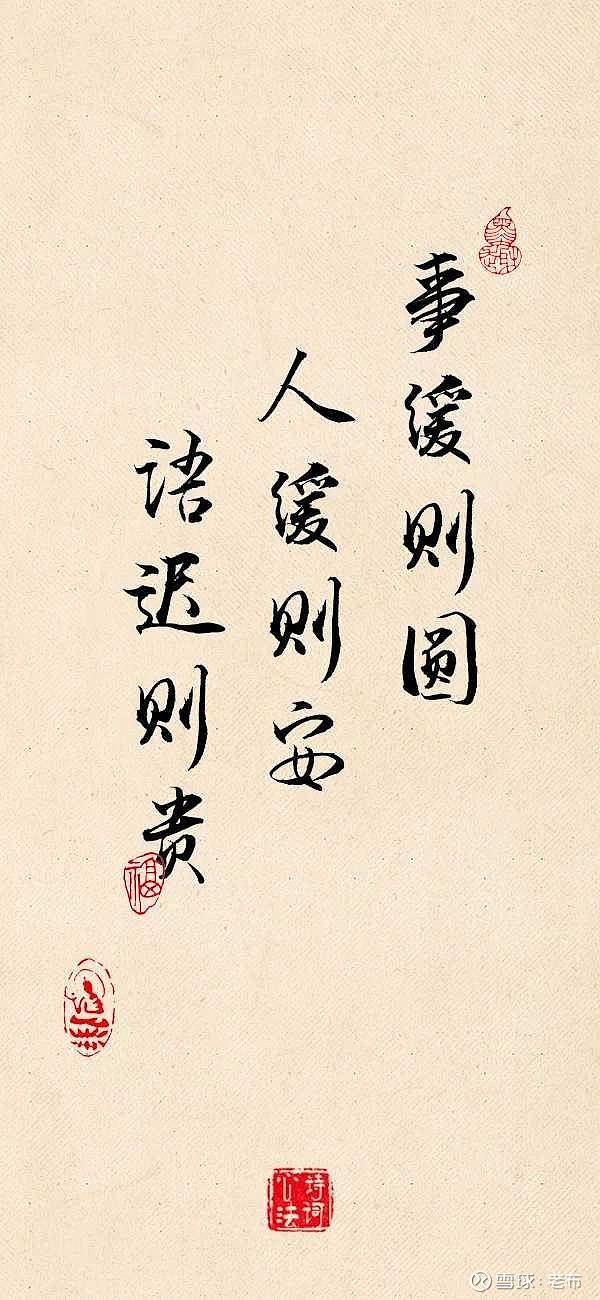 事缓则圆
人缓则安
语迟则贵
福
诗词
心法
雪球:老布